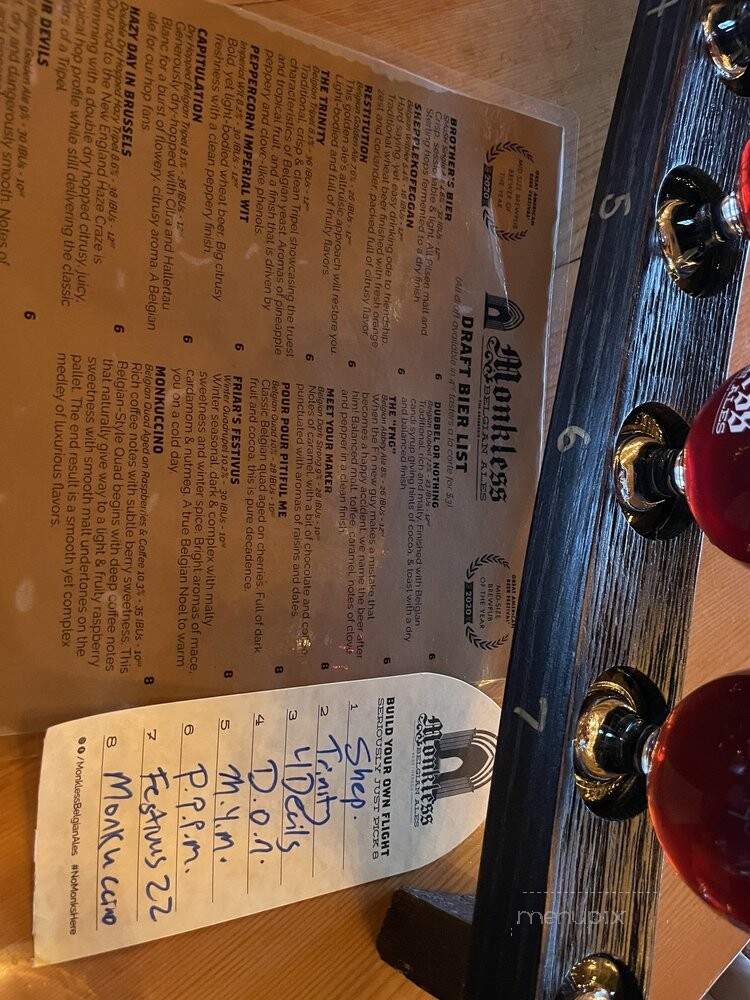 Monkless
BELGIAN ALES
DRAFT BIER LIST
(All draft available in 4oz tasters a la carte for $3)
GREAT AMERICAN
BEER FESTIVAL
MID-SIZE
BREWPUB
OF THE YEAR
2020
BROTHER'S BIER
Crisp, sessionable & light. All Pilsen malt and
Sterling hops fermented to a dry finish
6
SHEPPLEKOFEGGAN
Hard saying, yet easy drinking ode to friendship.
Traditional wheat beer finished with fresh orange
zest and coriander, packed full of citrusy flavor
6
RESTITUTION
This golden ale's altruistic approach will restore you.
Light bodied and full of fruity flavors
6
THE TRINITY
Traditional, crisp & clean Tripel showcasing the truest
characteristics of Belgian yeast. Aromas of pineapple
and tropical fruit, and a finish that is driven by
peppery and clove-like phenols
6
PEPPERCORN IMPERIAL WIT
Bold, yet light-bodied wheat beer. Big citrusy
freshness with a clean peppery finish
6
CAPITULATION
Dry Hopped Belgian Tripel 8.1% - 36 IBUs - 12oz
Generously dry-hopped with Citra and Hallertau
Blanc for a burst of flowery citrusy aroma. A Belgian
ale for our hop fans.
6
HAZY DAY IN BRUSSELS
Double Dry Hopped Hazy Tripel 8.5% - 38 IBUs - 12oz
Our nod to the New England Haze Craze is
with a double dry hopped citrusy, juicy,
hop profile while still delivering the classic
of a Tripel
6
DEVILS
dry and dangerously smooth. Notes of
6
DUBBEL OR NOTHING
Traditional, rich and malty. Finished with Belgian
candi syrup giving hints of cocoa, & toast with a dry
and balanced finish
6
THE
When the F'n new guy makes a mistake that
becomes a happy accident, we name the beer after
him! Balanced malt, toffee, caramel, notes of clove
and pepper in a clean finish
6
MEET YOUR MAKER
Belgian Dark Strong 9% - 28 IBUs - 10oz
Notes of caramel with a bit of chocolate and
punctuated with aromas of raisins and dates
8
POUR POUR PITIFUL ME
Classic Belgian quad aged on cherries. Full of dark
fruit and cocoa, this is pure decadence.
8
FRIAR'S FESTIVUS
Winter seasonal, dark & complex with malty
sweetness and winter spice. Bright aromas of mace,
cardamom & nutmeg. A true Belgian Noel to warm
you on a cold day
8
MONKUCCINO
Belgian Quad Aged on Raspberries & Coffee 10.3% - 35 IBUs - 10oz
Rich coffee notes with subtle berry sweetness. This
Belgian-Style Quad begins with deep coffee notes
that naturally give way to a light & fruity raspberry
sweetness with smooth malt undertones on the
pallet. The end result is a smooth yet complex
medley of luxurious flavors.
8
GREAT AMERICAN
BEER FESTIVAL
MID-SIZE
BREWPUB
OF THE YEAR
2020
Monkless
BELGIAN ALES
BUILD YOUR OWN FLIGHT
SERIOUSLY JUST PICK 8
1 Shep.
2 Trinity
3 4 Devils
4 D.O.N.
5 M.Y.M.
6 P.P.P.M.
7 Festivus 22
8 Monkuccino
/MonklessBelgianAles #NoMonksHere
4
5
6
7
ALES
menupix